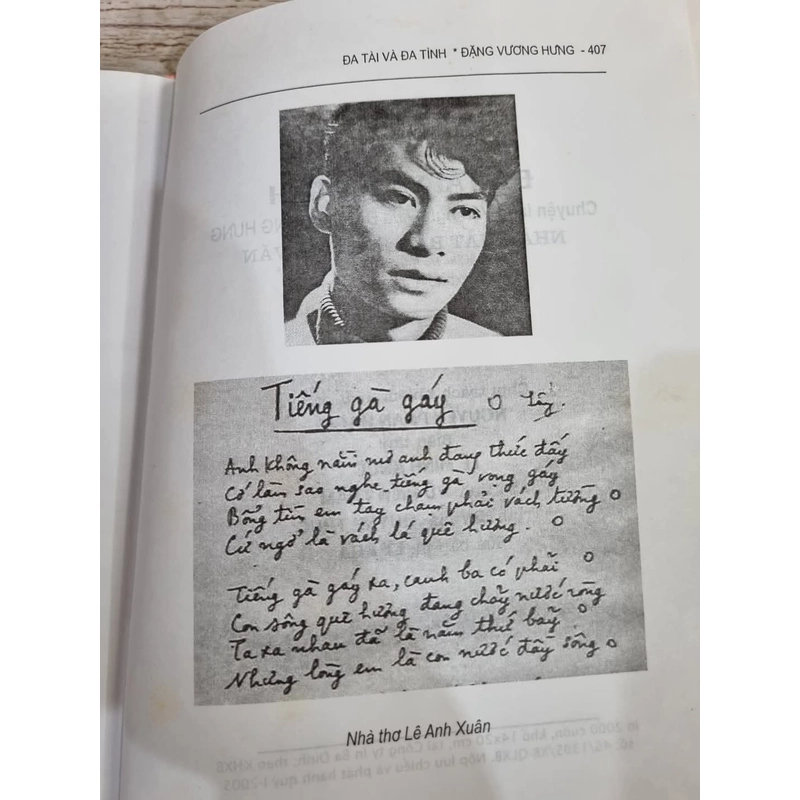 ĐA TÀI VÀ ĐA TÌNH * ĐẶNG VƯƠNG HƯNG - 407
Tiếng gà gáy
Anh không nằm mơ anh đang thức đấy
Cớ làm sao nghe tiếng gà vọng gáy
Bổng tìm em tay chạm phải vách tường
Cứ ngở là vách lá quê hương.
Tiếng gà gáy xa, canh ba có phải
Con sông quê hương đang chảy nước ròng
Ta xa nhau đã là năm thứ bảy
Nhưng lòng em là con nước đầy sông
Nhà thơ Lê Anh Xuân